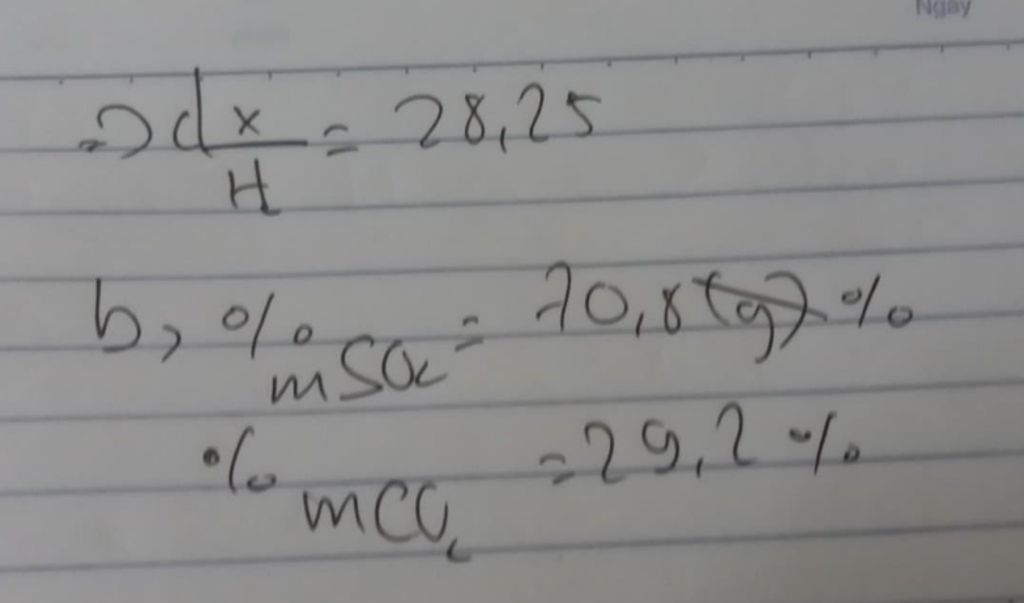 Ngày
=> d x/H = 28,25
b, % mSO₂ = 70,8 %
% mCO₂ = 29,2 %